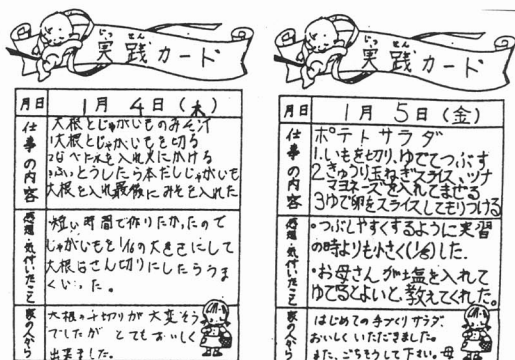 じっせん
実践カード
月日 1月4日(木)
仕事の内容
大根とじゃがいものみそ汁
1大根とじゃがいもを切る
2なべに水を入れ火にかける
3ふっとうしたら本だしじゃがいも
大根を入れ最後にみそを入れた
感想・気付いたこと
・短い時間で作りたかったので
じゃがいもを1/16の大きさにして
大根はさん切りにしたらうま
くいった。
家の人から
大根の千切りが大変そう
でしたが とてもおいしく
出来ました。
じっせん
実践カード
月日 1月5日(金)
仕事の内容
ポテトサラダ
1.いもを切り、ゆでてつぶす
2きゅうり玉ねぎスライス、ツナ
マヨネーズを入れてまぜる
3ゆで卵をスライスしてもりつける
感想・気付いたこと
・つぶしやすくするように実習
の時よりも小さく()した。
・お母さんが塩を入れて
ゆでるとよいと、教えてくれた。
家の人から
はじめての手づくりサラダ
おいしくいただきました。
また、ごちそうして下さい。母